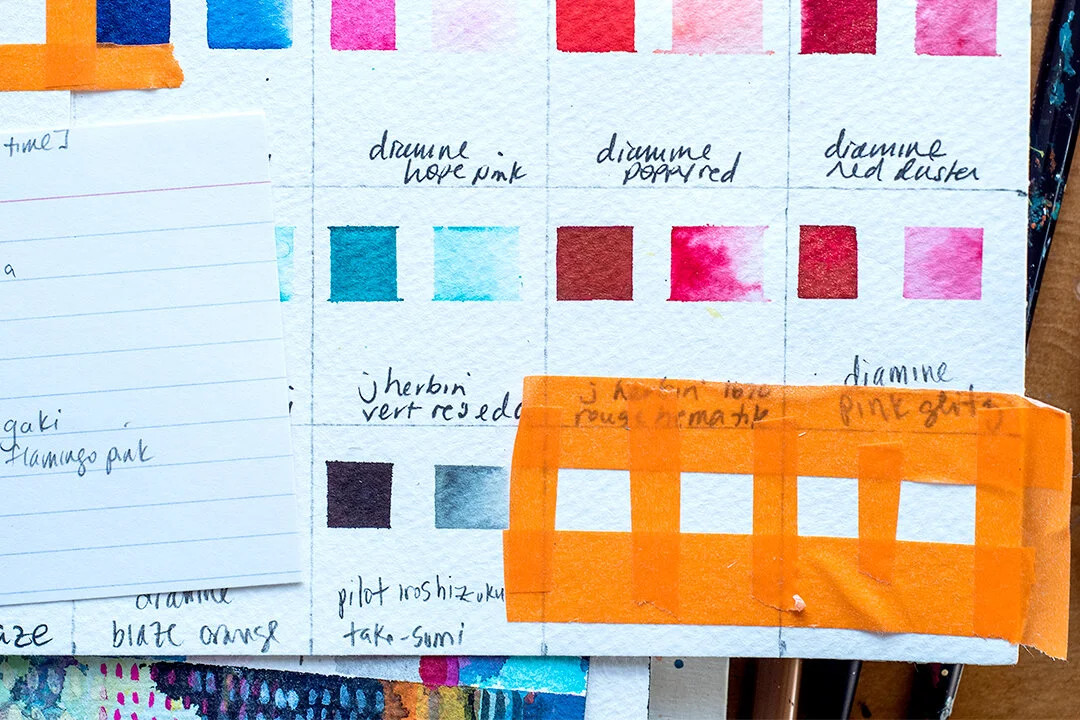 time]
diamine
hope pink
diamine
poppy red
diamine
red duster
a
gaki
flamingo pink
j herbin
vert reseda
j herbin 1670
rouge hematite
diamine
pink glitz
diamine
blaze orange
pilot iroshizuku
take-sumi